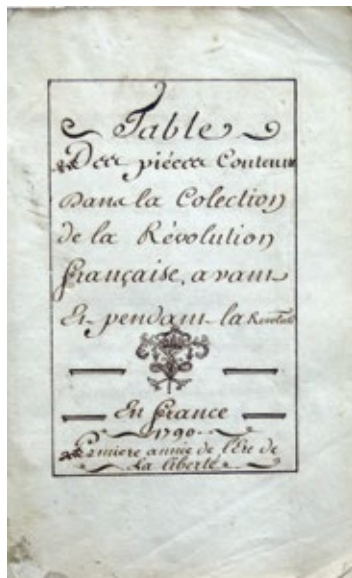 Table
Des pièces Contenu
Dans la Colection
de la Révolution
française, avant
Et pendant la
En france
1790
Premiere année de l'Ere de
La liberté